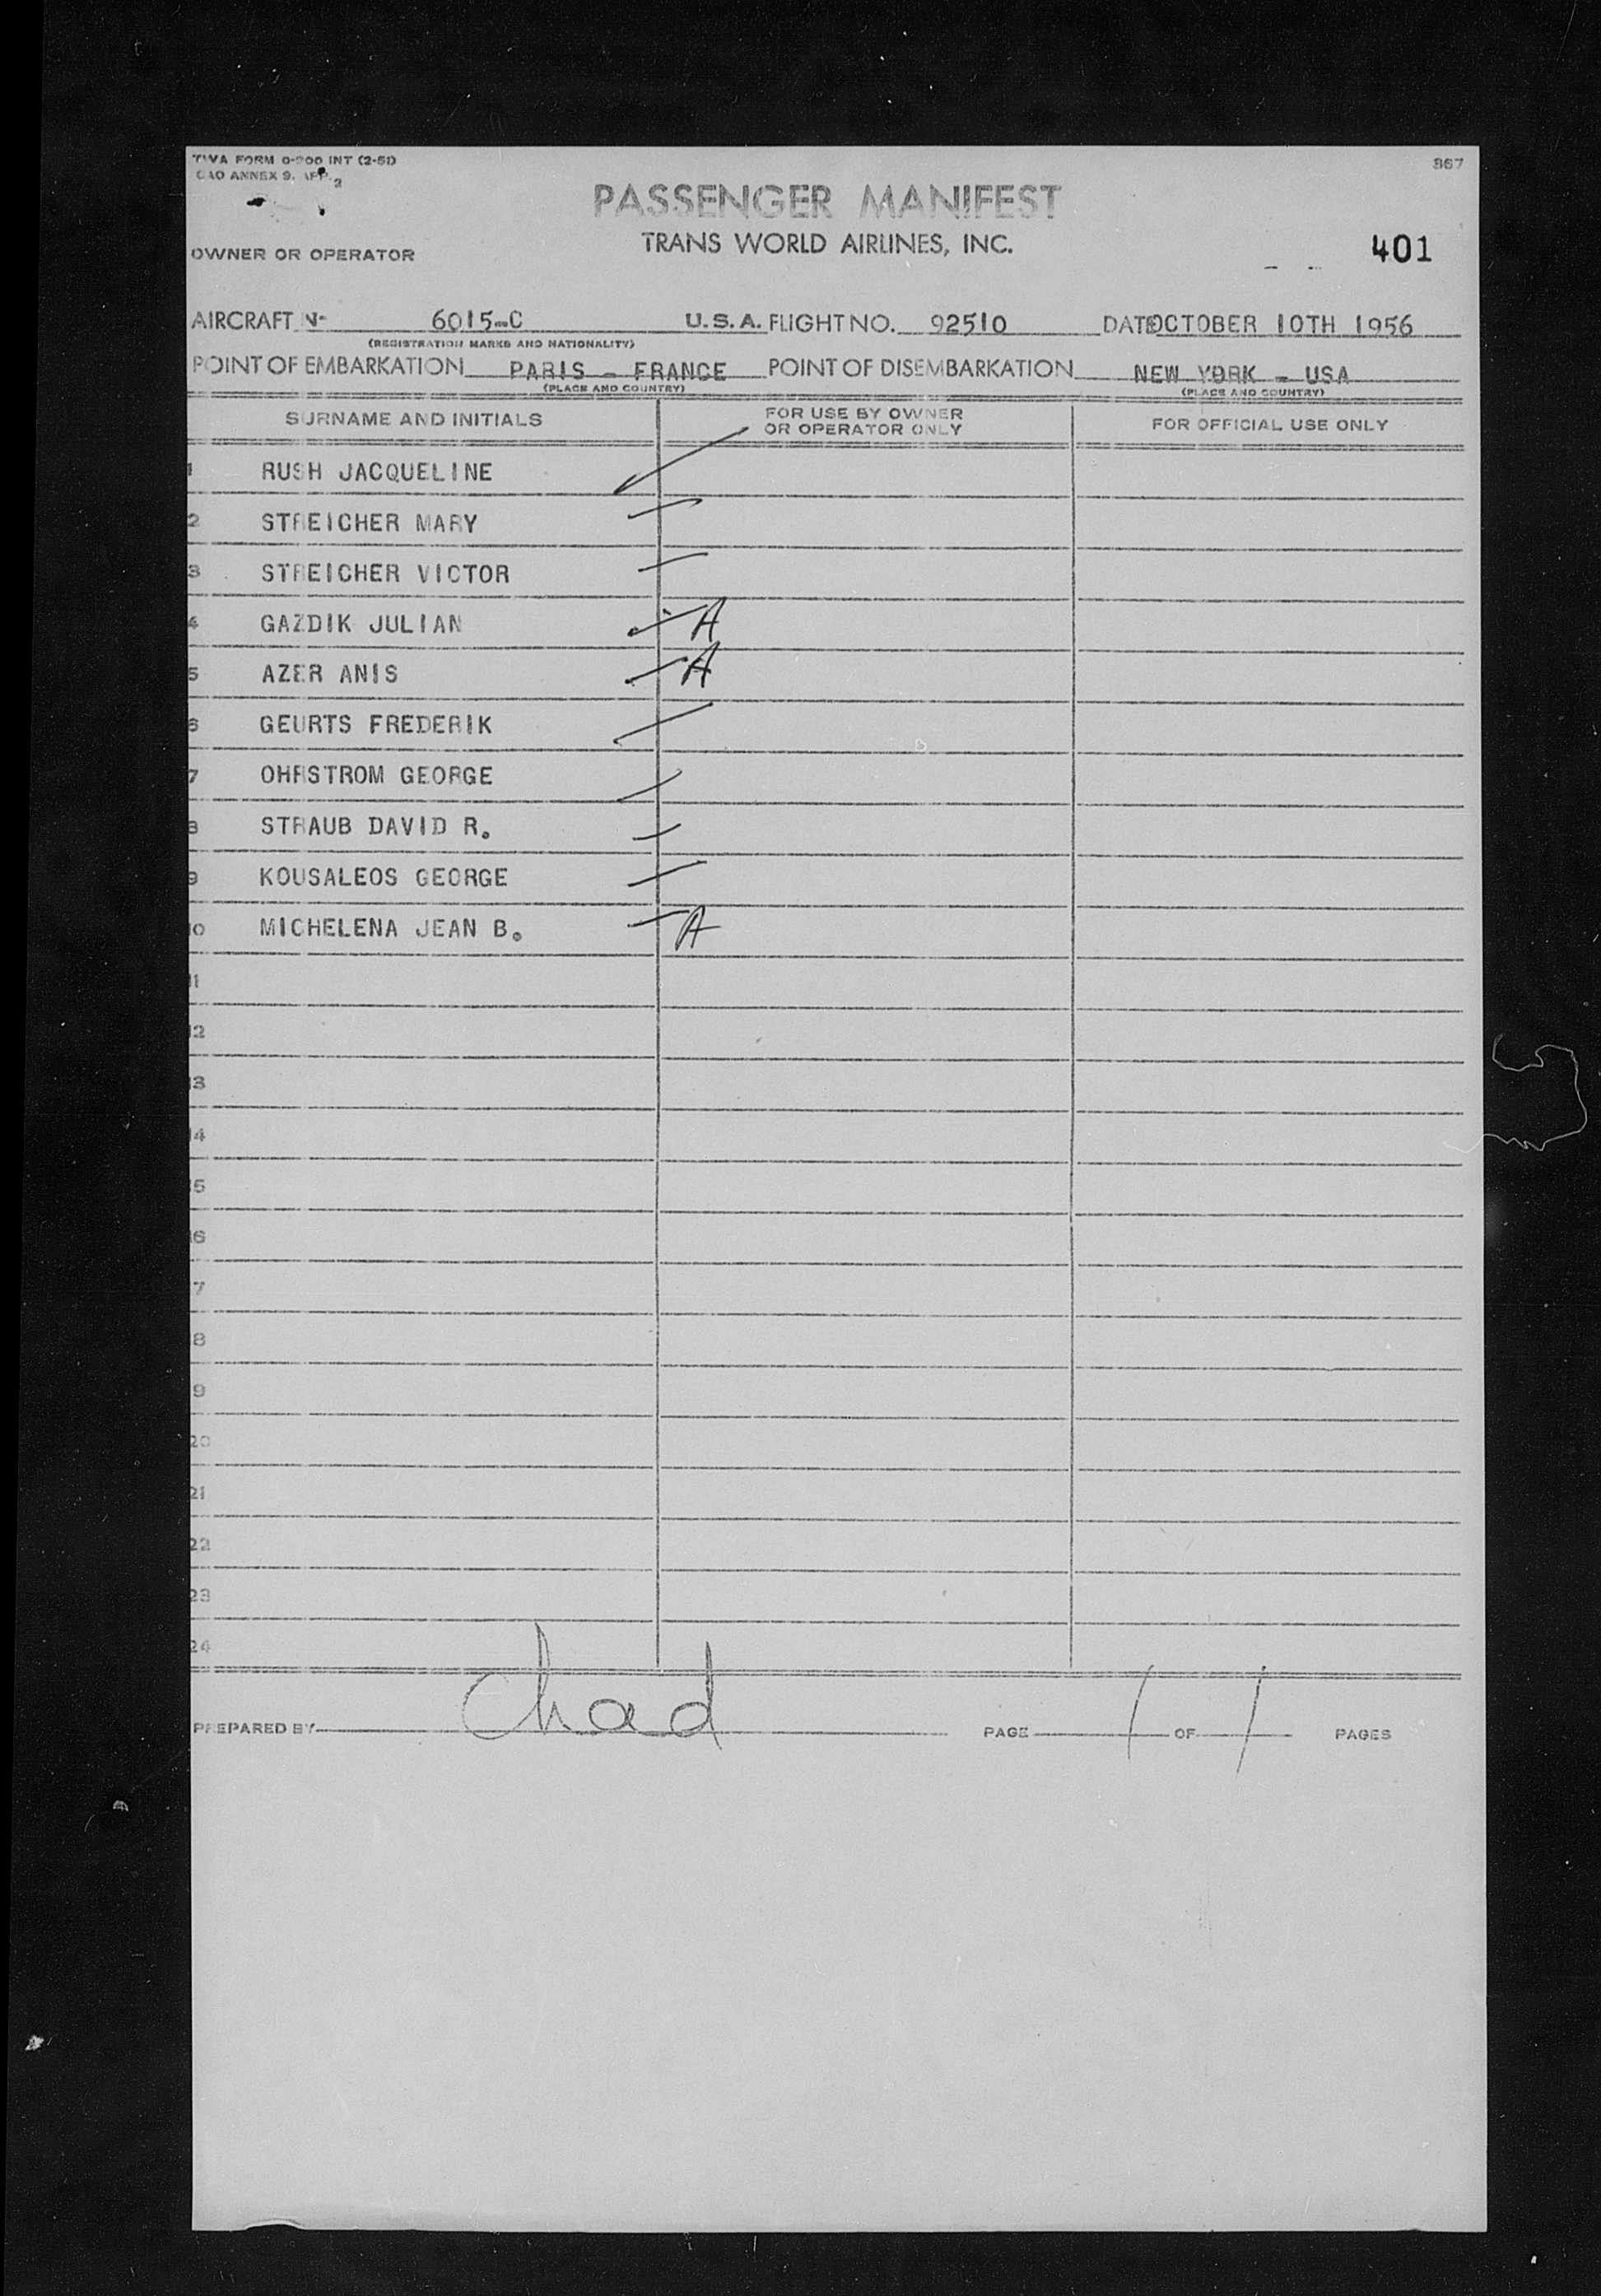 TWA FORM 0-200 INT (2-51)
ICAO ANNEX 9, APP. 2
867
PASSENGER MANIFEST
TRANS WORLD AIRLINES, INC.
OWNER OR OPERATOR
401
AIRCRAFT N- 6015-C U.S.A. FLIGHT NO. 92510 DATE OCTOBER 10TH 1956
(REGISTRATION MARKS AND NATIONALITY)
POINT OF EMBARKATION PARIS - FRANCE POINT OF DISEMBARKATION NEW YORK - USA
(PLACE AND COUNTRY) (PLACE AND COUNTRY)
SURNAME AND INITIALS FOR USE BY OWNER OR OPERATOR ONLY FOR OFFICIAL USE ONLY
1 RUSH JACQUELINE
2 STREICHER MARY
3 STREICHER VICTOR
4 GAZDIK JULIAN A
5 AZER ANIS A
6 GEURTS FREDERIK
7 OHRSTROM GEORGE
8 STRAUB DAVID R.
9 KOUSALEOS GEORGE
10 MICHELENA JEAN B. A
11
12
13
14
15
16
17
18
19
20
21
22
23
24
PREPARED BY Chad PAGE 1 OF 1 PAGES